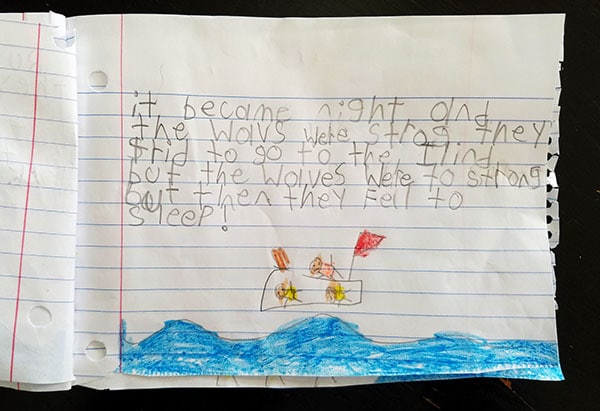 it became night and
the wavs were strog. they
trid to go to the Ilind
but the waives were to strong
but then they fell to
sleep!